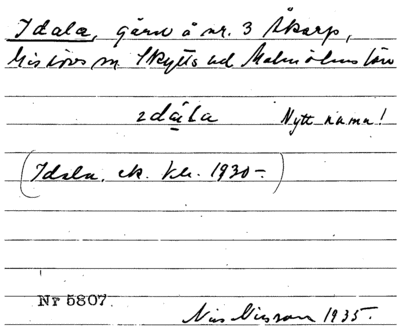 Idala, gård å nr. 3 Åkarp,
Mistövs sn Skytts hd Malmöhus län
idála Nytt namn!
(Idala, ek. kl. 1930-.)
Nr 5807.
Nils Nilsson 1935.